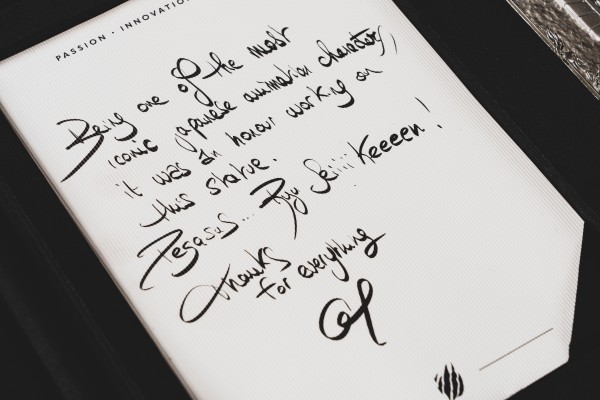 PASSION · INNOVATION
Being one of the most
iconic japanese animation characters,
it was an honour working on
this statue.
Pegasus... Ryu Seiiii Keeeen!
Thanks
for everything